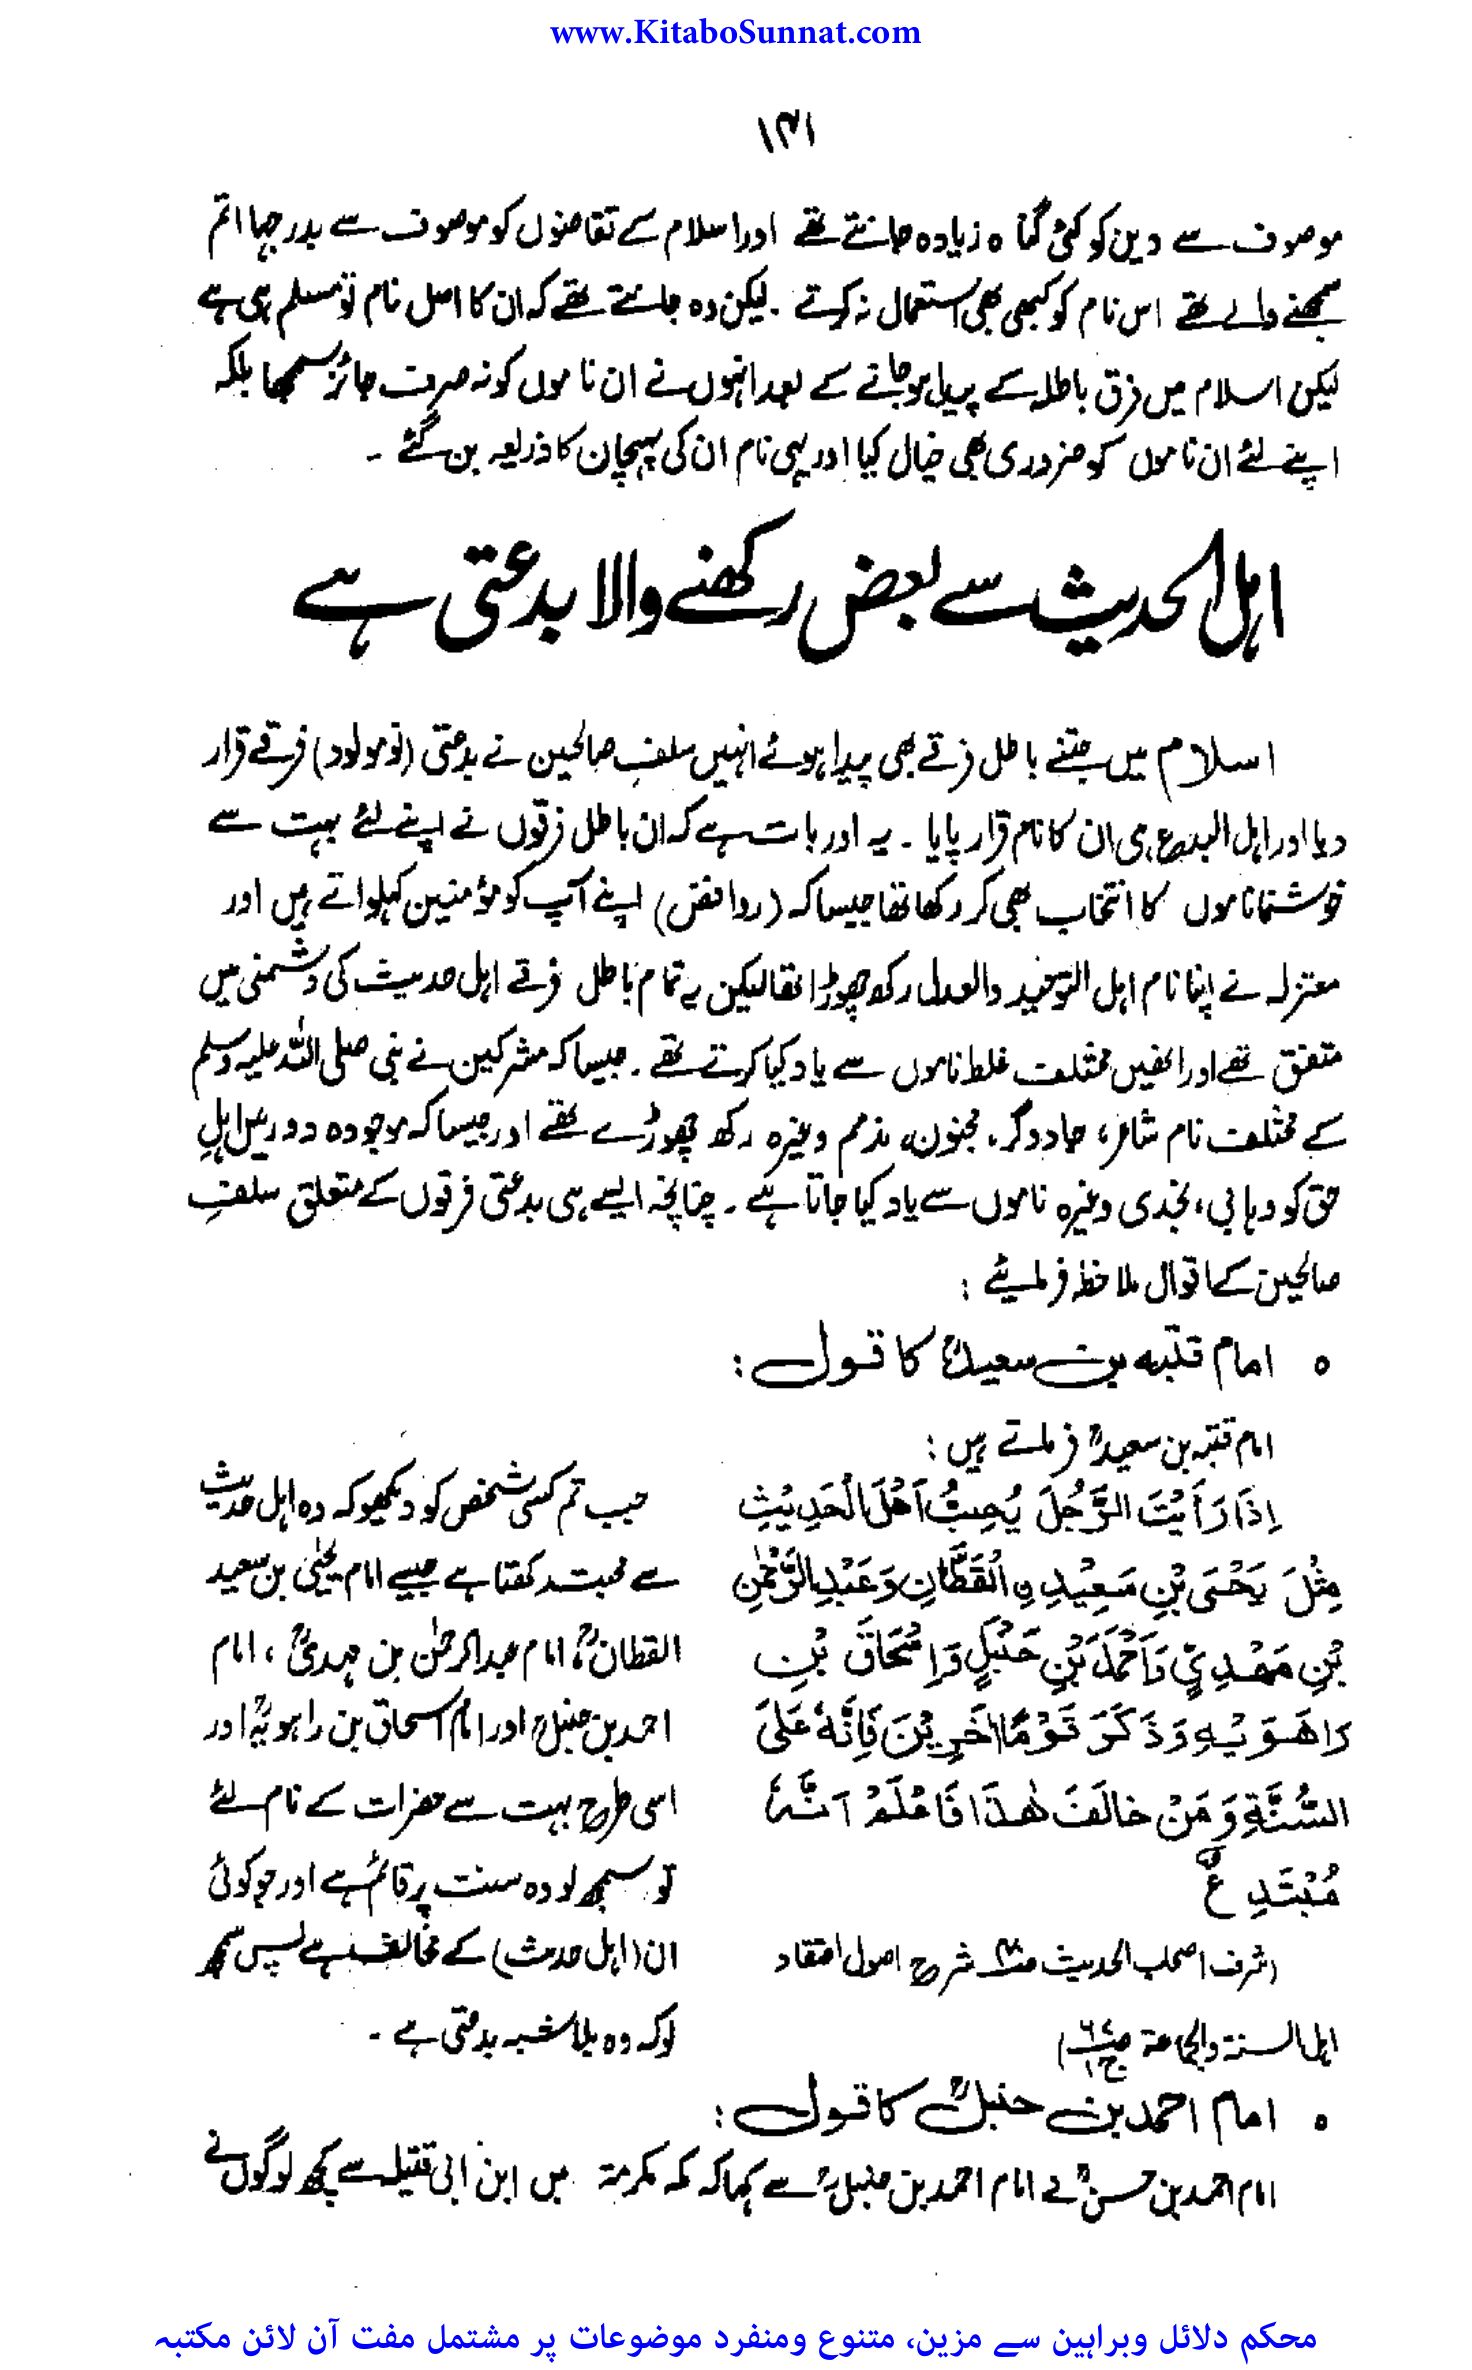 www.KitaboSunnat.com
۱۴۱
موصوف سے دین کو کئی گنا ہ زیادہ جانتے تھے اور اسلام کے تقاضوں کو موصوف سے بدرجہا اتم
سمجھنے والے تھے اس نام کو کبھی بھی استعمال نہ کرتے ۔ لیکن وہ جانتے تھے کہ ان کا اصل نام تو مسلم ہی ہے
لیکن اسلام میں فرق باطلہ کے پیدا ہو جانے کے بعد انہوں نے ان ناموں کو نہ صرف جائز سمجھا بلکہ
اپنے لئے ان ناموں کو ضروری بھی خیال کیا اور یہی نام ان کی پہچان کا ذریعہ بن گئے ۔
اہل الحدیث سے بعض رکھنے والا بدعتی ہے
اسلام میں جتنے باطل فرقے بھی پیدا ہوئے انہیں سلفِ صالحین نے بدعتی (نومولود) فرقے قرار
دیا اور اہل البدع ہی ان کا نام قرار پایا ۔ یہ اور بات ہے کہ ان باطل فرقوں نے اپنے لئے بہت سے
خوشنما ناموں کا انتخاب بھی کر رکھا تھا جیسا کہ (روافض) اپنے آپ کو مؤمنین کہلواتے ہیں اور
معتزلہ نے اپنا نام اہل التوحید والعدل رکھ چھوڑا تھا لیکن یہ تمام باطل فرقے اہل حدیث کی دشمنی میں
متفق تھے اور انھیں مختلف غلط ناموں سے یاد کیا کرتے تھے ۔ جیسا کہ مشرکین نے نبی صلی اللہ علیہ وسلم
کے مختلف نام شاعر، جادوگر، مجنون، مذمم وغیرہ رکھ چھوڑے تھے اور جیسا کہ موجودہ دور میں اہلِ
حق کو وہابی، نجدی وغیرہ ناموں سے یاد کیا جاتا ہے ۔ چنانچہ ایسے ہی بدعتی فرقوں کے متعلق سلفِ
صالحین کے اقوال ملاحظہ فرمائیے :
○ امام قتیبہ بن سعیدؒ کا قول :
امام قتیبہ بن سعیدؒ فرماتے ہیں :
اِذَا رَأَیْتَ الرَّجُلَ یُحِبُّ اَهْلَ الْحَدِیْثِ
مِثْلَ یَحْیَی بْنِ سَعِیْدِ نِ الْقَطَّانِ وَعَبْدِ الرَّحْمٰنِ
بْنِ مَهْدِیٍّ وَاَحْمَدَ بْنِ حَنْبَلٍ وَاِسْحَاقَ بْنِ
رَاهَوَیْهِ وَذَکَرَ قَوْمًا اٰخَرِیْنَ فَاِنَّهٗ عَلَی
السُّنَّةِ وَ مَنْ خَالَفَ هٰذَا فَاعْلَمْ اَنَّهٗ
مُبْتَدِ عٌ
(شرف اصحٰب الحدیث شرح اصول اعتقاد
اہل السنۃ والجماعۃ ج۱)
جب تم کسی شخص کو دیکھو کہ وہ اہل حدیث
سے محبت رکھتا ہے جیسے امام یحییٰ بن سعید
القطانؒ، امام عبدالرحمٰن بن مہدیؒ، امام
احمد بن حنبلؒ اور امام اسحاق بن راہویہؒ اور
اسی طرح بہت سے حضرات کے نام لئے
تو سمجھ لو وہ سنت پر قائم ہے اور جو کوئی
ان (اہل حدیث) کے مخالف ہے پس سمجھ
لو کہ وہ بلا شبہ بدعتی ہے ۔
○ امام احمد بن حنبلؒ کا قول :
امام احمد بن حسنؒ نے امام احمد بن حنبلؒ سے کہا کہ مکہ مکرمۃ میں ابن ابی قتیلہ سے کچھ لوگوں نے
محکم دلائل وبراہین سے مزین، متنوع ومنفرد موضوعات پر مشتمل مفت آن لائن مکتبہ